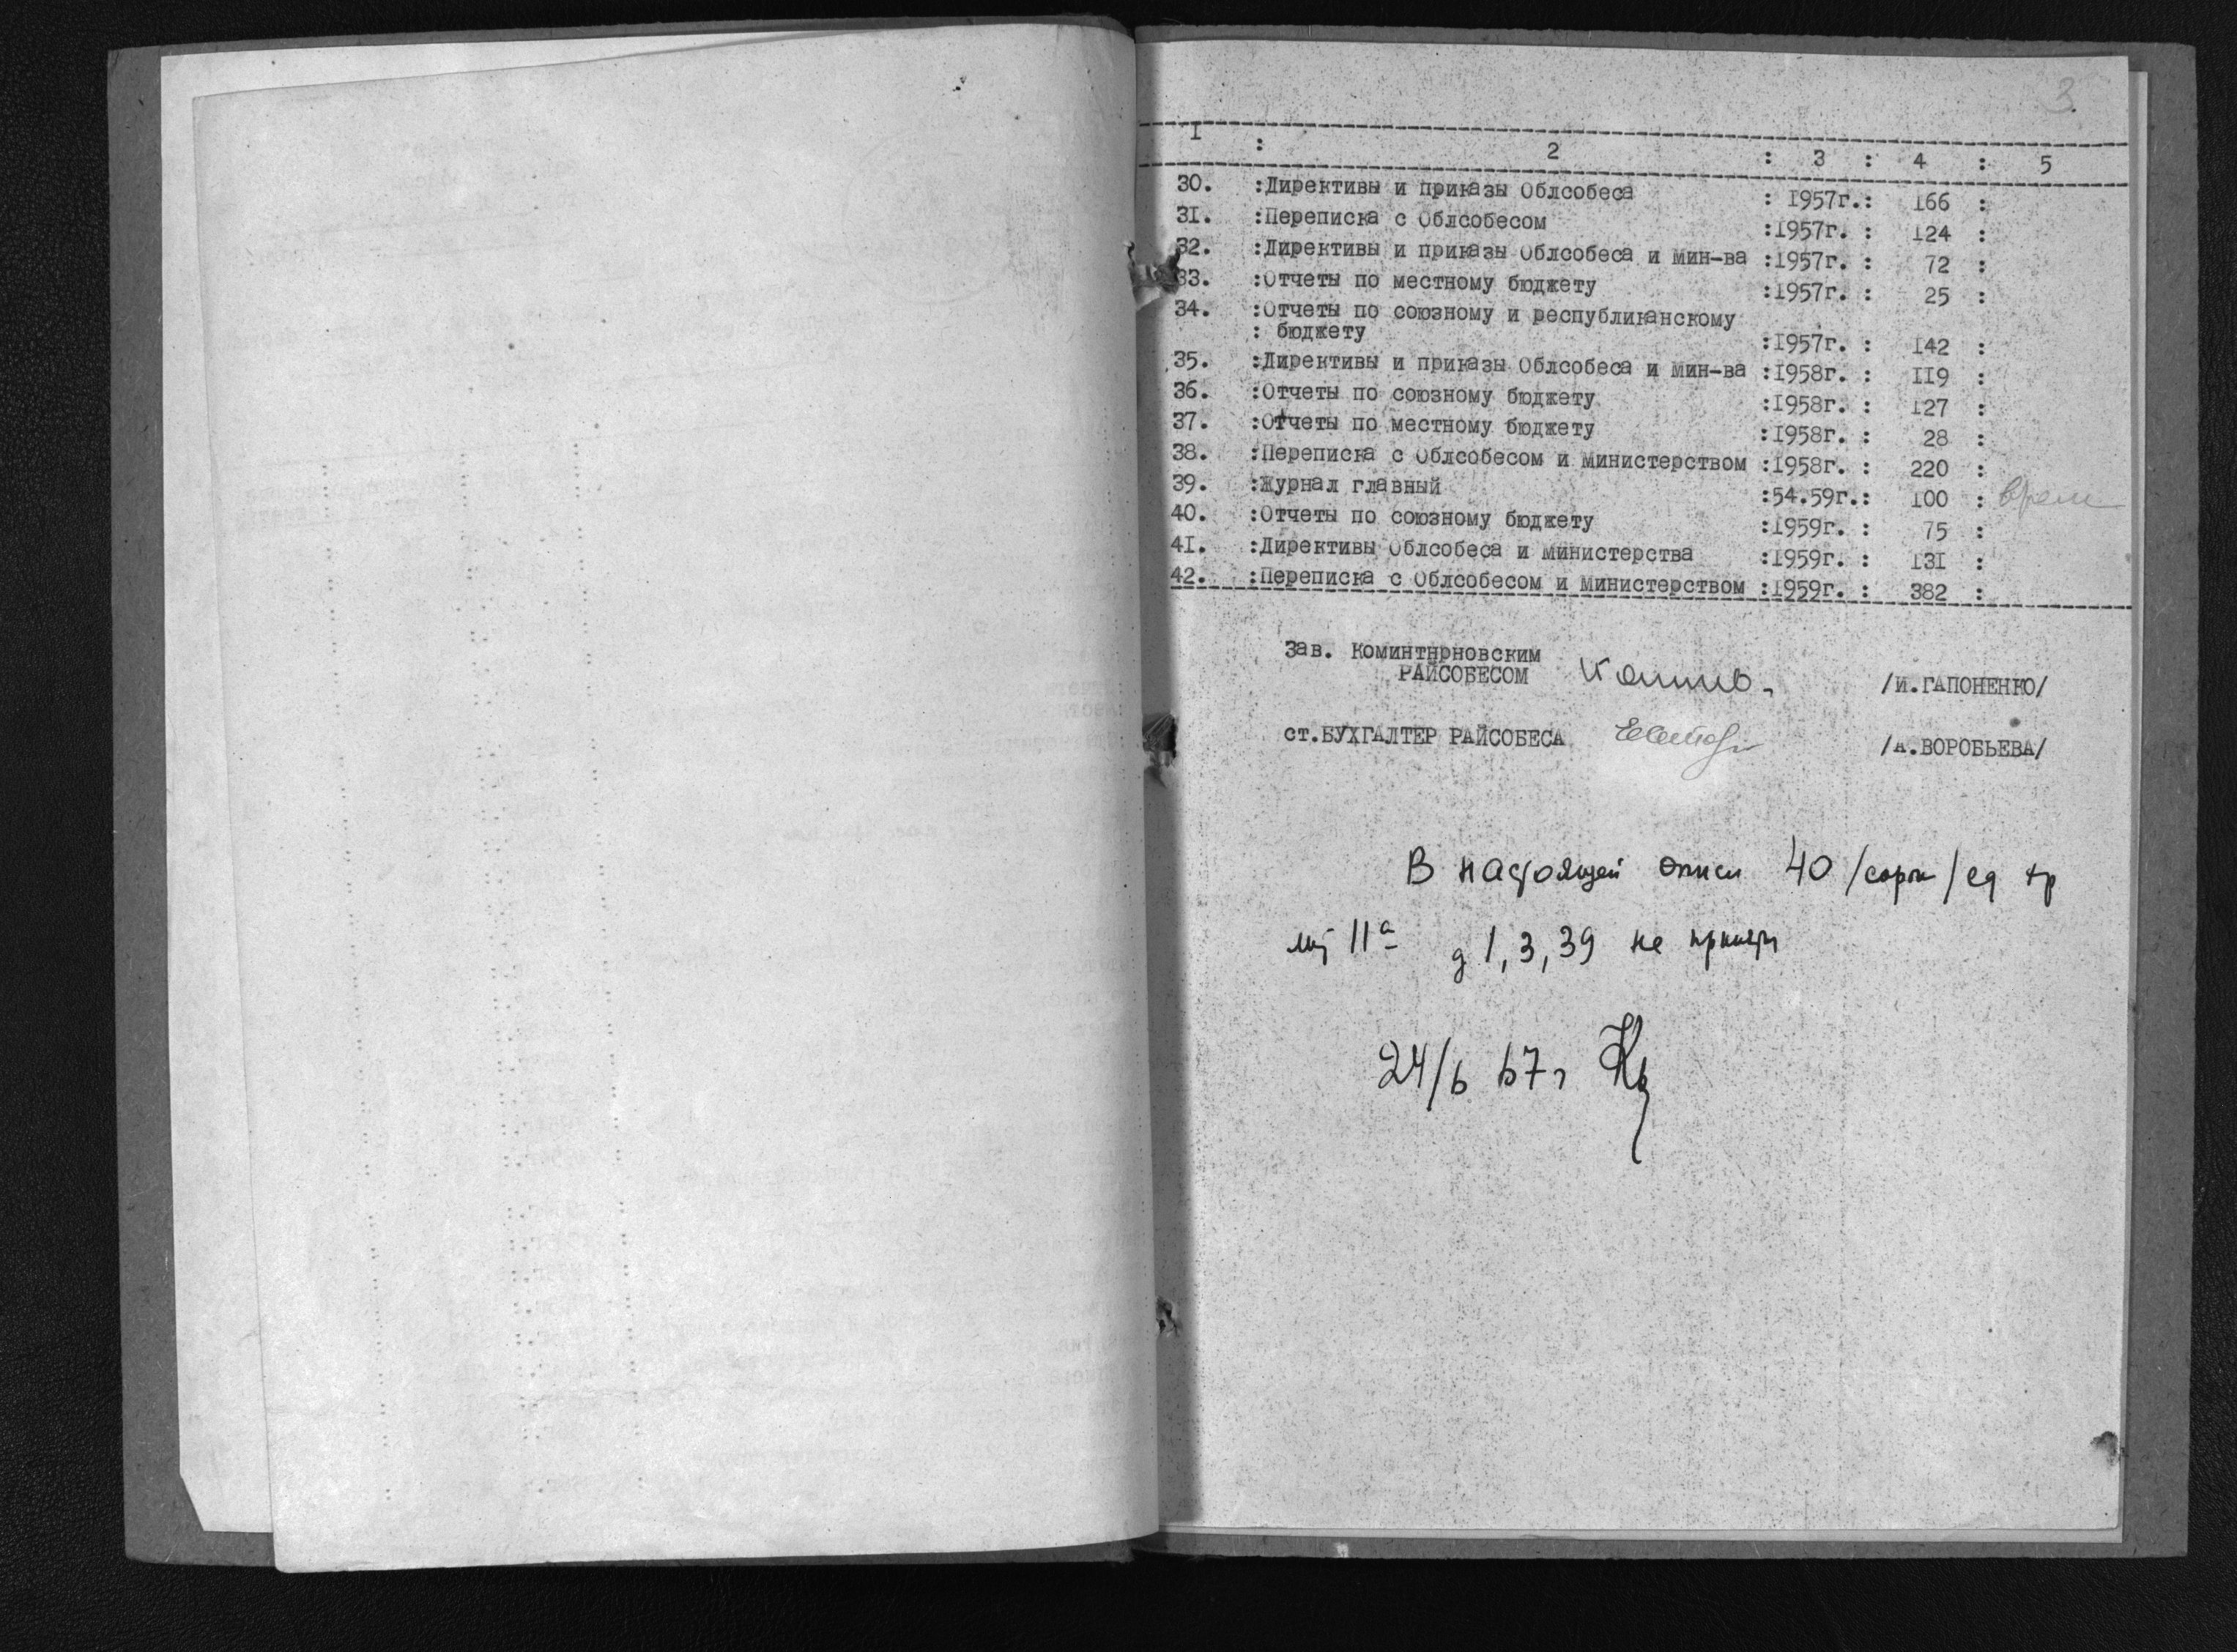 3.
I : 2 : 3 : 4 : 5
30. :Директивы и приказы Облсобеса : 1957г.: 166 :
31. :Переписка с Облсобесом :1957г. : 124 :
32. :Директивы и приказы Облсобеса и мин-ва :1957г. : 72 :
33. :Отчеты по местному бюджету :1957г. : 25 :
34. :Отчеты по союзному и республиканскому
: бюджету :1957г. : 142 :
35. :Директивы и приказы Облсобеса и мин-ва :1958г. : II9 :
36. :Отчеты по союзному бюджету :1958г. : 127 :
37. :Отчеты по местному бюджету :1958г. : 28 :
38. :Переписка с Облсобесом и министерством :1958г. : 220 :
39. :Журнал главный :54.59г.: 100 : врем
40. :Отчеты по союзному бюджету :1959г. : 75 :
41. :Директивы Облсобеса и министерства :1959г. : 131 :
42. :Переписка с Облсобесом и министерством :1959г. : 382 :
Зав. Коминтнрновским
РАЙСОБЕСОМ /И.ГАПОНЕНКО/
ст.БУХГАЛТЕР РАЙСОБЕСА /А.ВОРОБЬЕВА/
В настоящей описи 40 /сорок/ ед хр
лит 11а д 1, 3, 39 не приняты
24/6 67г